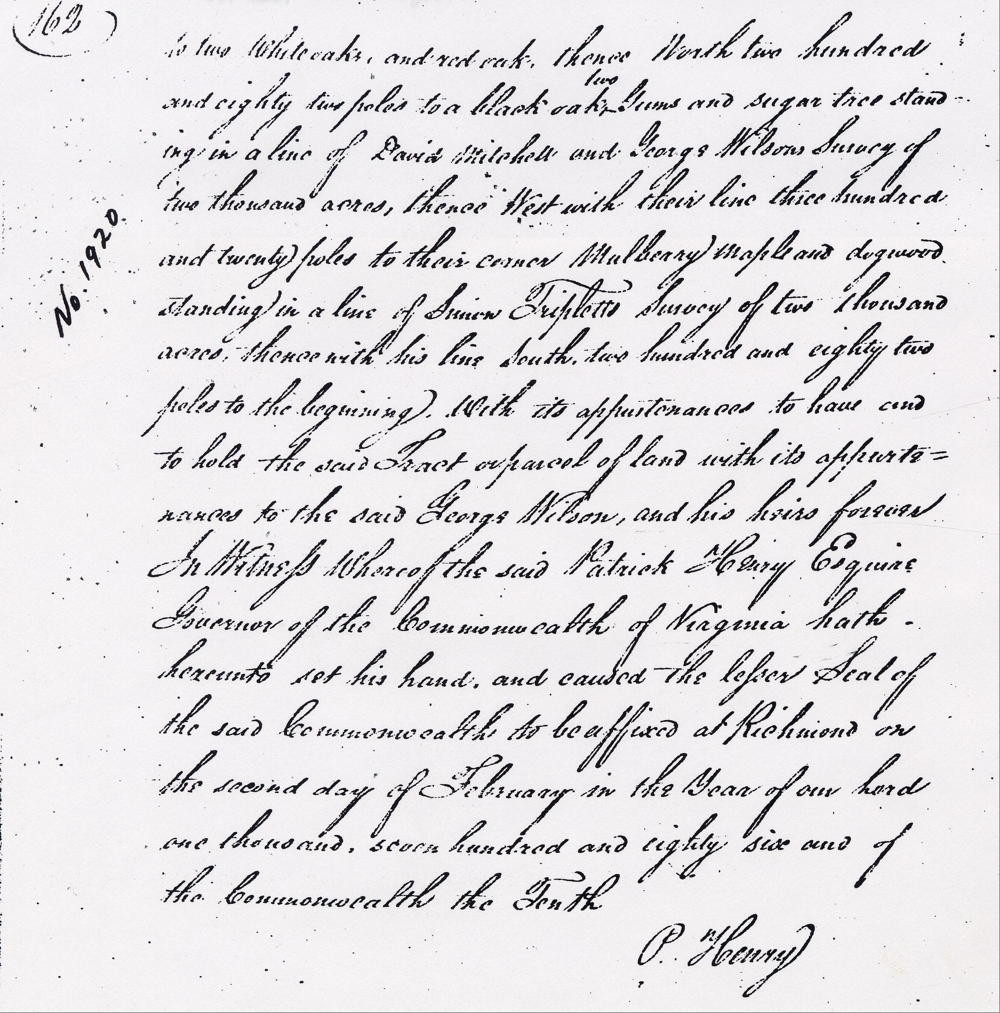 162
No. 1920.
to two Whiteoaks, and red oak, thence North two hundred
two
and eighty two poles to a black oak, Gums and sugar tree stand-
ing in a line of David Mitchell and George Wilsons Survey of
two thousand acres, thence West with their line three hundred
and twenty poles to their corner Mulberry Maple and dogwood
standing in a line of Simon Tripletts Survey of two thousand
acres, thence with his line South, two hundred and eighty two
poles to the beginning. With its appurtenances to have and
to hold the said Tract or parcel of land with its appurte=
nances to the said George Wilson, and his heirs forever
In Witness Whereof the said Patrick Henry Esquire
Governor of the Commonwealth of Virginia hath -
hereunto set his hand, and caused the lesser Seal of
the said Commonwealth to be affixed at Richmond on
the second day of February in the Year of our Lord
one thousand, seven hundred and eighty six and of
the Commonwealth the Tenth
P. Henry